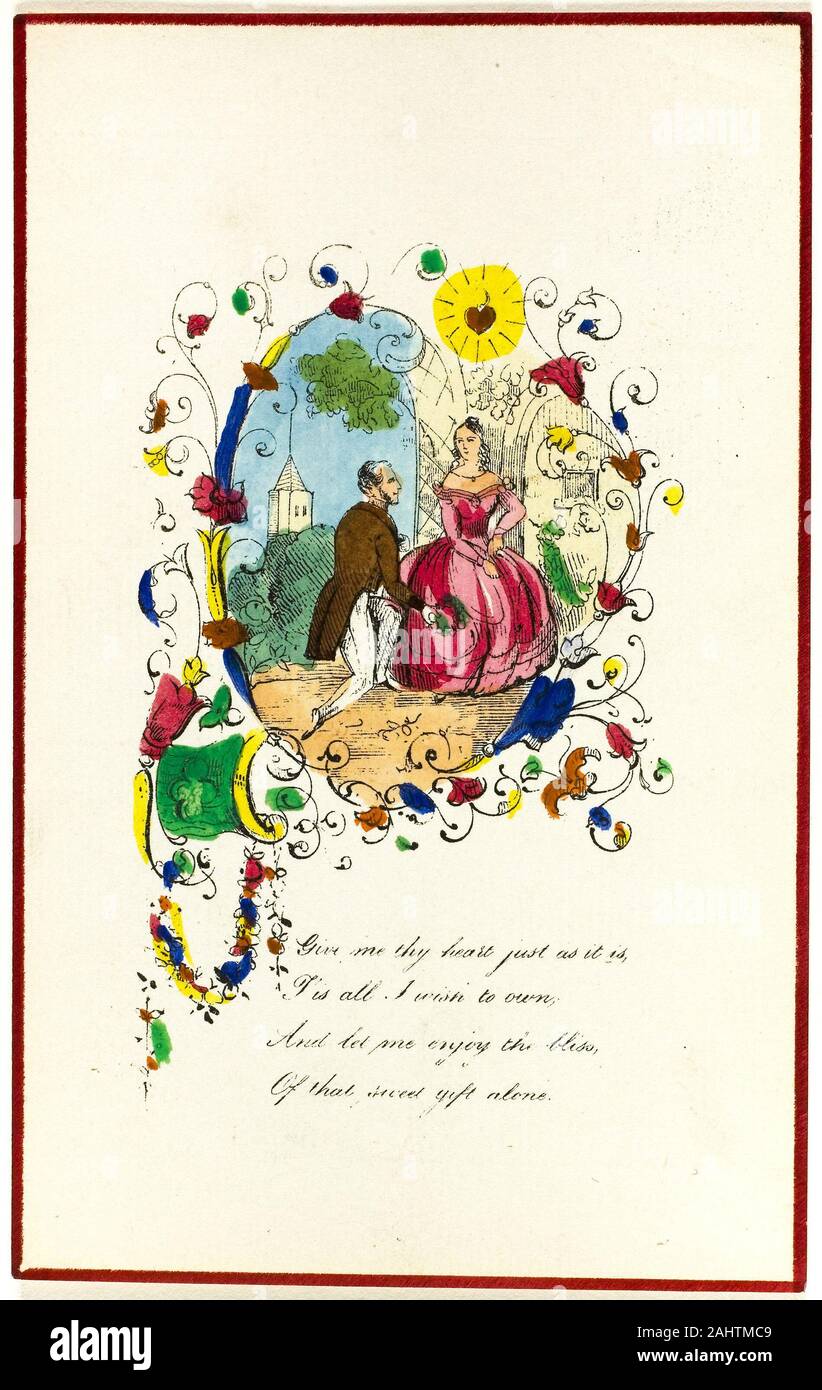 alamy
Give me thy heart just as it is,
T'is all I wish to own;
And let me enjoy the bliss,
Of that sweet gift alone.
alamy
Image ID: 2AHTMC9
www.alamy.com